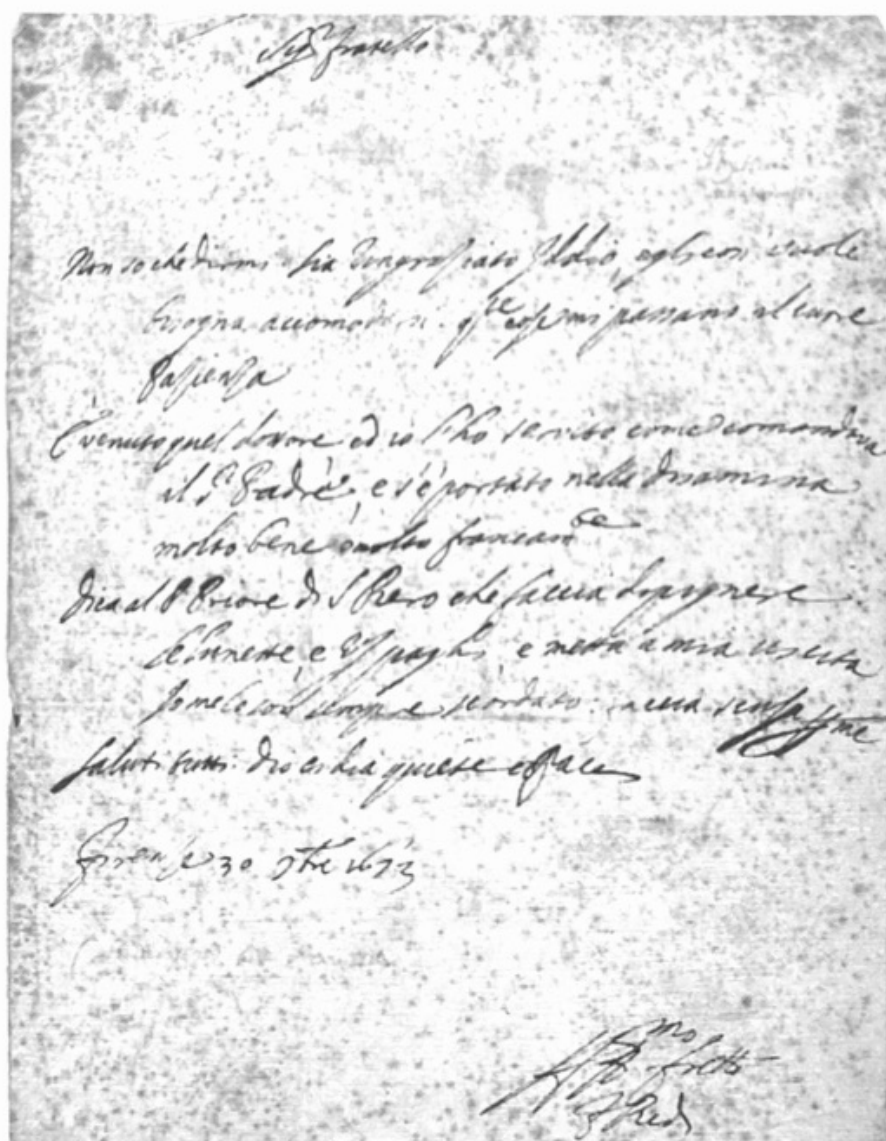 Sig.r fratello
Non so che dirmi. Sia ringraziato Iddio, egli così vuole
bisogna accomodarsi. q.ste cose mi passano il cuore
Pazienza
È venuto quel dottore, ed io l'ho servito come comandava
il S.r Padre, e s'è portato nella disamina
molto bene e molto francam.te
Dica al P. Priore di S. Piero che faccia dipignere
le lunette, e gli paghi, e metta a mia uscita
sempre scordato:
Saluti tutti. Dio ci dia quiete e pace
Firenze 30 7bre 1673
Aff.mo fratello
F. Redi